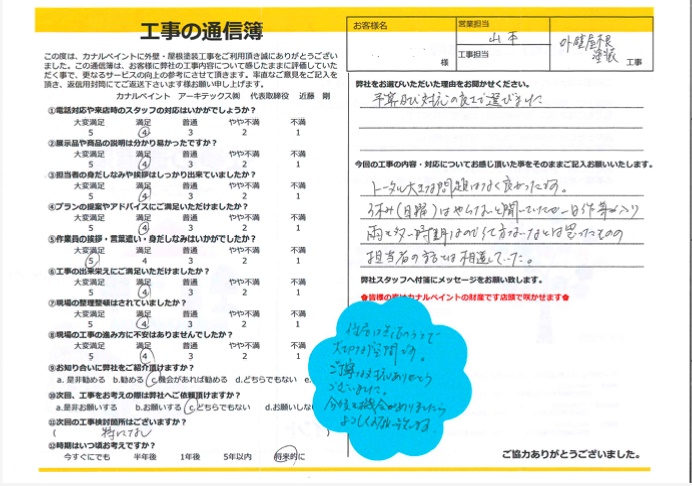 工事の通信簿
この度は、カナルペイントに外壁・屋根塗装工事をご利用頂き誠にありがとうござい
ました。この通信簿は、お客様に弊社の工事内容について感じたままに評価していた
だく事で、更なるサービスの向上の参考にさせて頂きます。率直なご意見をご記入を
頂き、返信用封筒にてご返送下さいます様お願い申し上げます。
カナルペイント アーキテックス㈱ 代表取締役 近藤 剛
①電話対応や来店時のスタッフの対応はいかがでしょうか?
大変満足 満足 普通 やや不満 不満
5 4 3 2 1
②展示品や商品の説明は分かり易かったですか?
大変満足 満足 普通 やや不満 不満
5 4 3 2 1
③担当者の身だしなみや挨拶はしっかり出来ていましたか?
大変満足 満足 普通 やや不満 不満
5 4 3 2 1
④プランの提案やアドバイスにご満足いただけましたか?
大変満足 満足 普通 やや不満 不満
5 4 3 2 1
⑤作業員の挨拶・言葉遣い・身だしなみはいかがでしたか?
大変満足 満足 普通 やや不満 不満
5 4 3 2 1
⑥工事の出来栄えにご満足いただけましたか?
大変満足 満足 普通 やや不満 不満
5 4 3 2 1
⑦現場の整理整頓はされていましたか?
大変満足 満足 普通 やや不満 不満
5 4 3 2 1
⑧現場の工事の進み方に不安はありませんでしたか?
大変満足 満足 普通 やや不満 不満
5 4 3 2 1
⑨お知り合いに弊社をご紹介頂けますか?
a. 是非勧める b.勧める c.機会があれば勧める d.どちらでもない e.
⑩次回、工事をお考えの際は弊社へご依頼頂けますか?
a.是非お願いする b.お願いする c.どちらでもない d.お願いしな
⑪次回の工事検討箇所はございますか?
( 特になし
⑫時期はいつ頃お考えですか?
今すぐにでも 半年後 1年後 5年以内 将来的に
お客様名 様
営業担当 山本
工事担当
外壁屋根
塗装 工事
弊社をお選びいただいた理由をお聞かせください。
予算及び対応の良さで選びました
今回の工事の内容・対応についてお感じ頂いた事をそのままご記入お願いいたします。
トータル大きな問題はなく良かったです。
休み(日曜)はやらないと聞いていたが一日作業が入り
雨と多い時期なので仕方ないなとは思ったものの
担当者の話とは相違していた。
弊社スタッフへ付箋にメッセージをお願い致します。
住居は生活のうえで
大切な空間です。
ご丁寧な対応ありがとう
ございました。
今後も機会がありましたら
よろしくお願いいたします。
ご協力ありがとうございました。